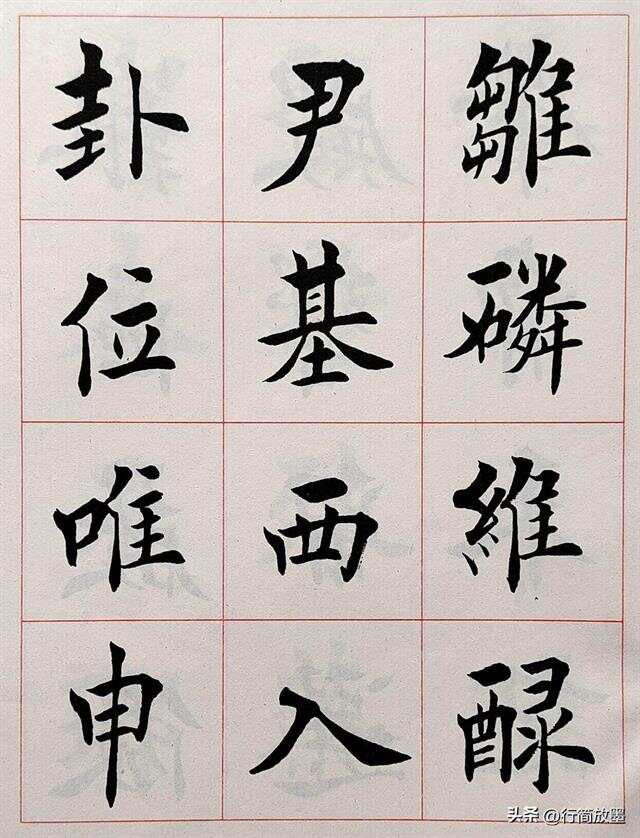 雛磷維醁
尹基西入
卦位唯申
头条 @行简放墨